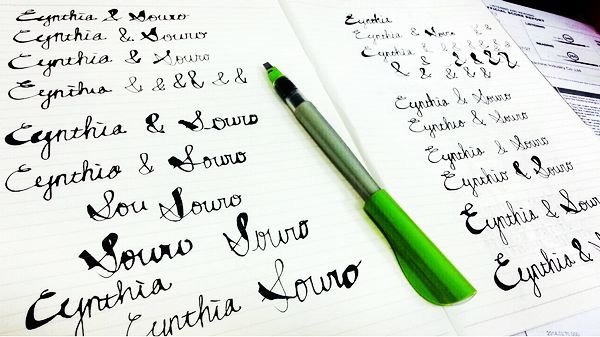 Cynthia & Souro
Cynthia & Souro
Cynthia & Souro
Cynthia & & & & & &
Cynthia & Souro
Cynthia & Souro
Sou Souro
Souro Souro
Cynthia
Cynthia Souro
Cynthia
Cynthia & Souro & &
Cynthia & & & & & & & &
& & & & & &
Cynthia & Souro
Cynthia & Souro
Cynthia & Souro
Cynthia & Souro
Cynthia & Souro
Cynthia & S
SCORE REPORT